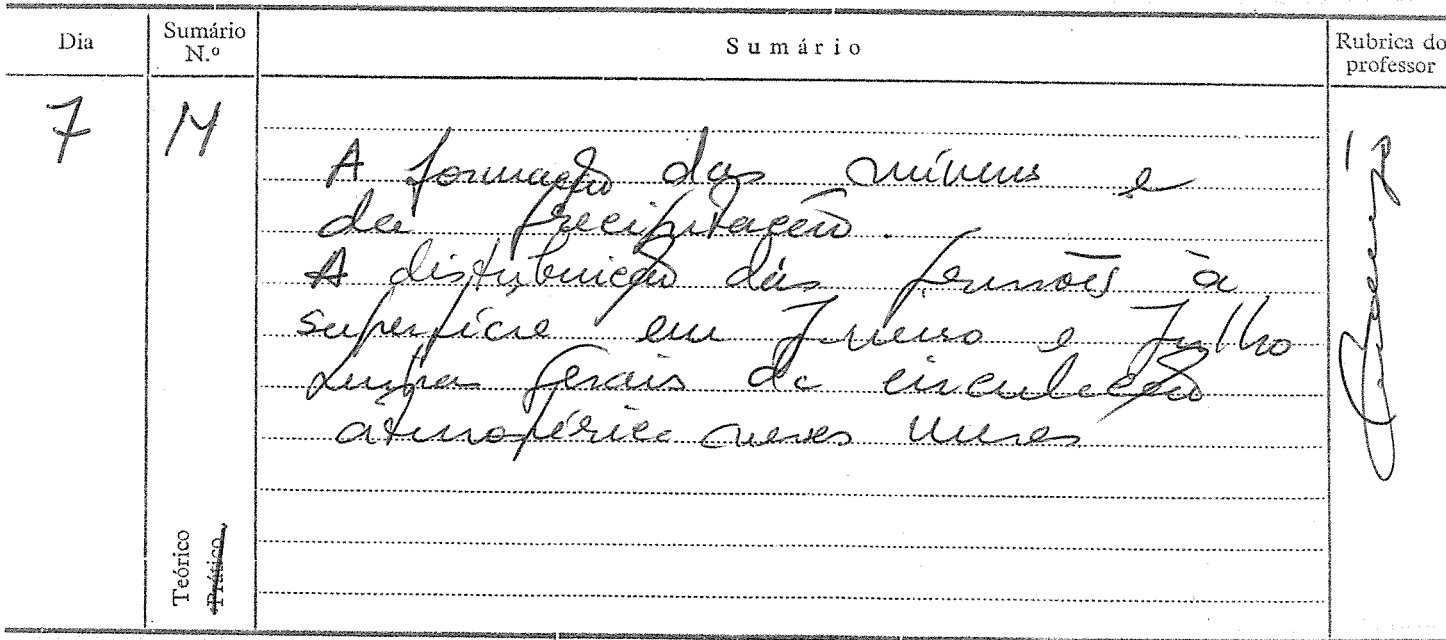 Dia
Sumário N.º
Sumário
Rubrica do professor
7
14
A formação das núvens e
da precipitação.
A distribuição das pressões à
superfície em Janeiro e Julho
Linhas gerais da circulação
atmosférica meses
Teórico
Prático